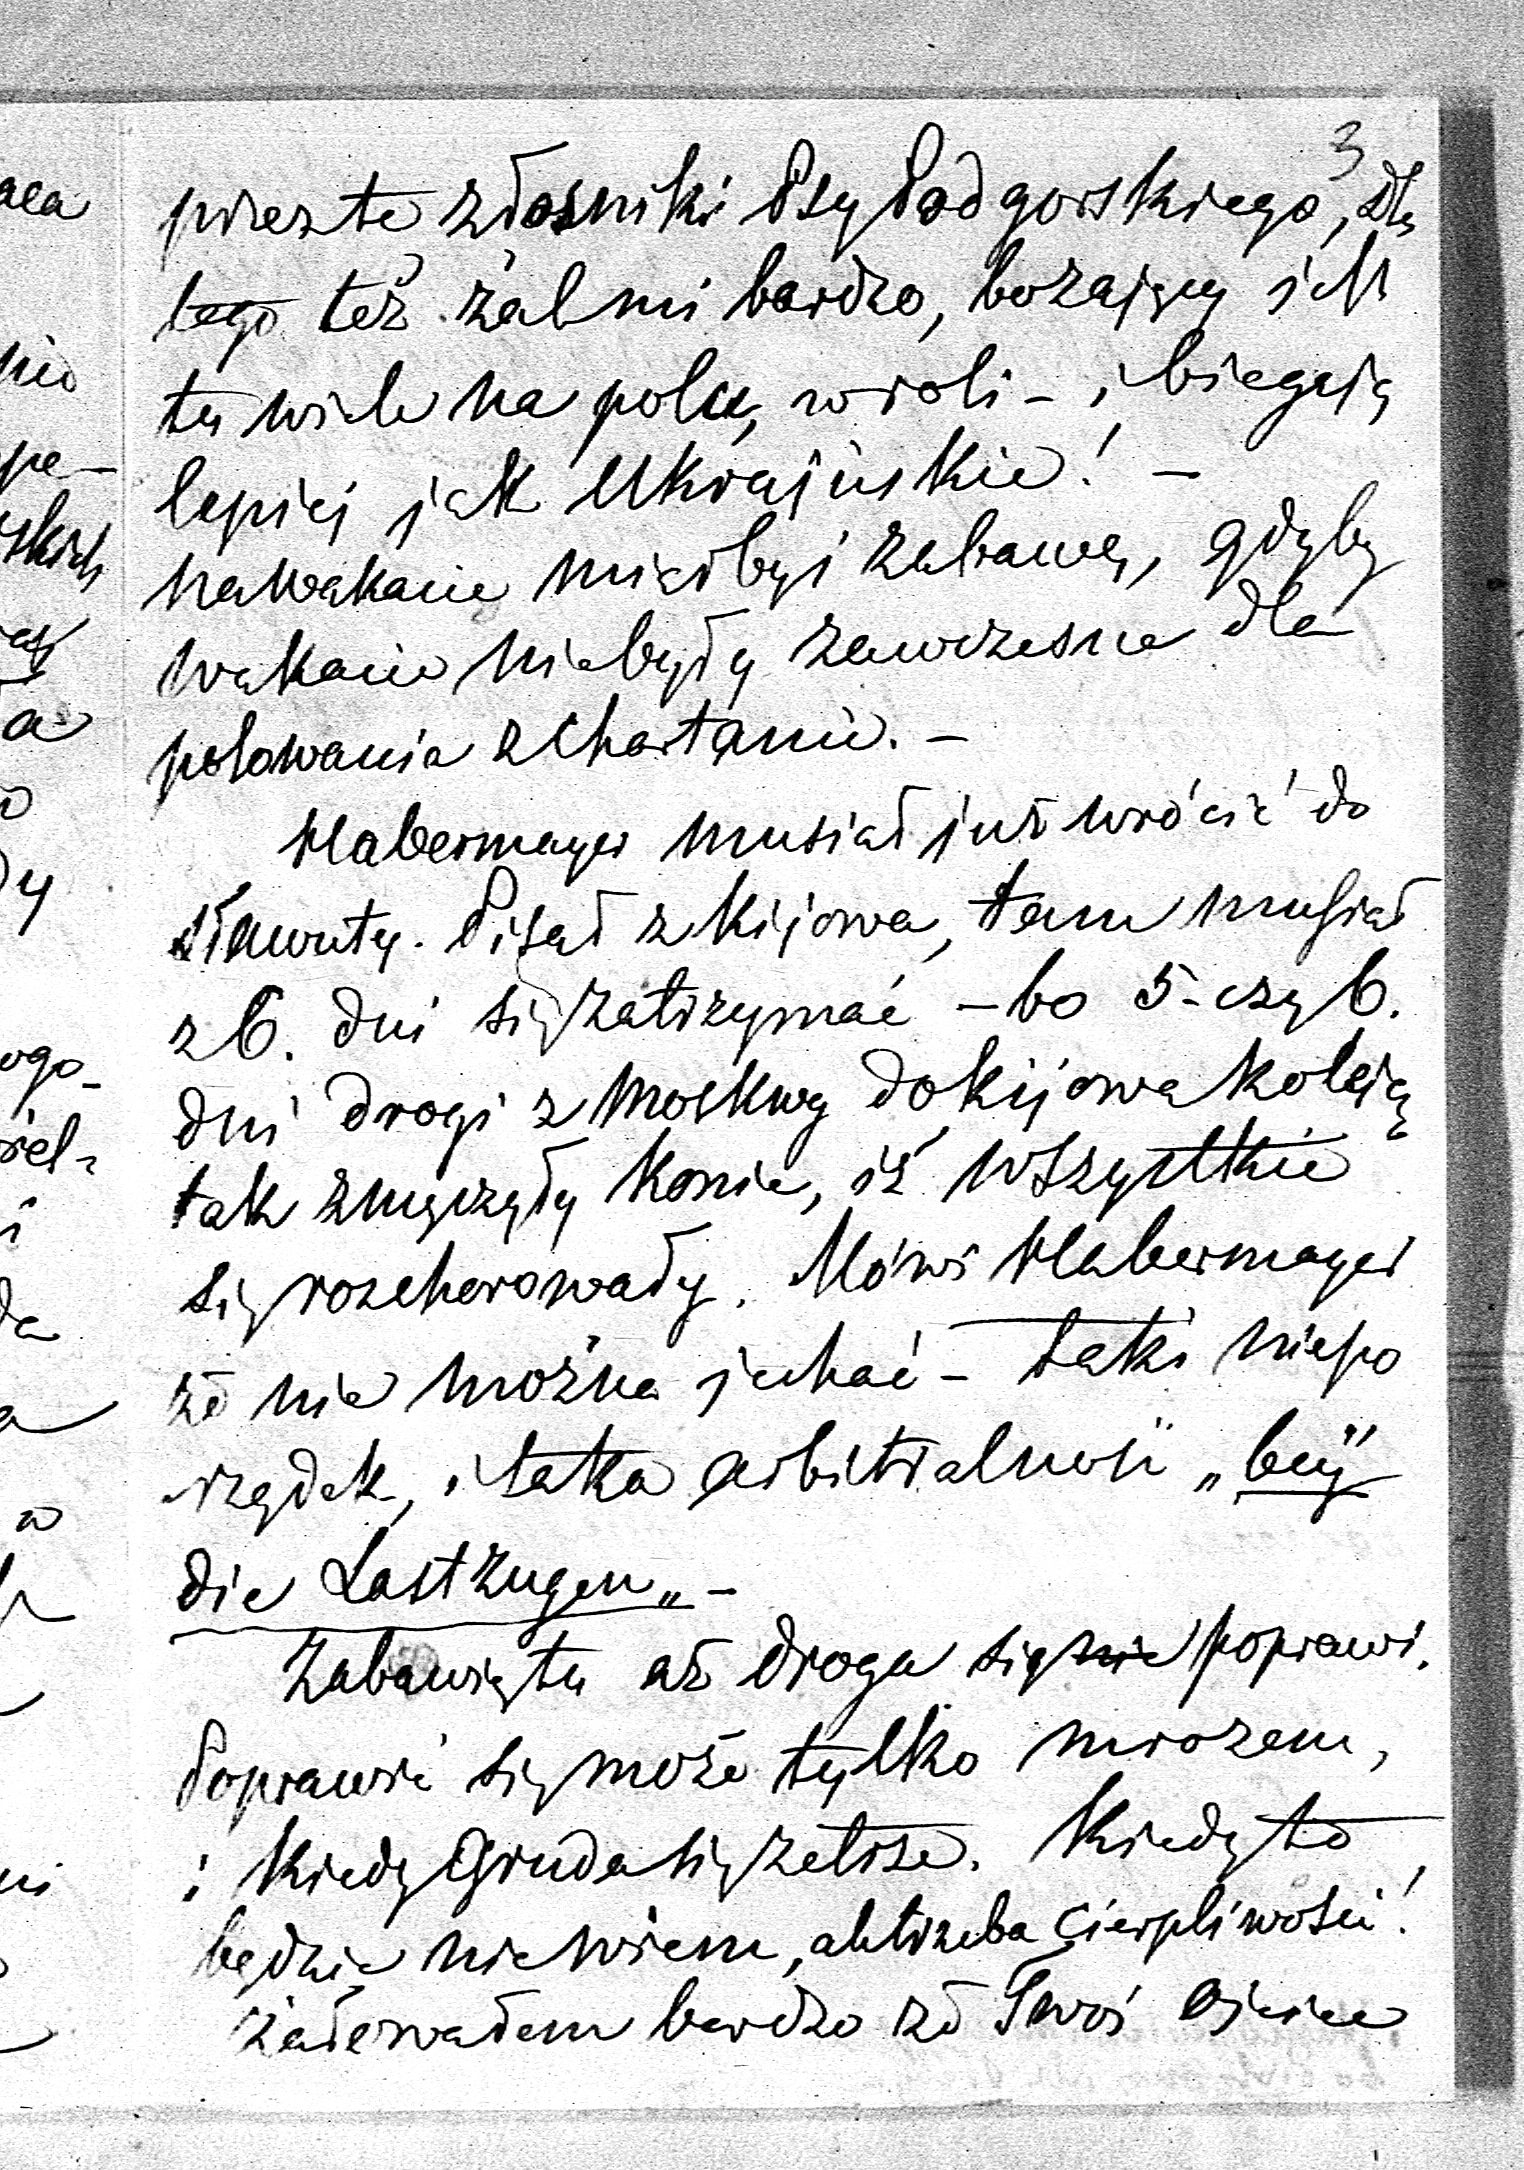 3
przezte złosniki Psy Podgorskiego, dla
tego też żal mi bardzo, bo zający jest
tu wiele na polu, w roli – i biegają
lepiej jak Ukraińskie! –
na wakacie miałbyś zabawę, gdyby
wakacie niebyły zawczesne dla
polowania z Chartami. –
Habermayer musiał już wrócić do
Sławuty. Pisał z Kijowa, tam musiał
z 6. dni się zatrzymać – bo 5- czy 6.
dni drogi z Moskwy do Kijowa koleją
tak zmęczyły konie, iż wszystkie
się rozchorowały. Mówi Habermayer
że nie można jechać – taki niepo
rządek, i taka arbitralność „beÿ
die Lastzugen„ –
Zabawię tu aż droga się nie poprawi.
Poprawić się może tylko mrozem,
i kiedy Gruda się zetrze. Kiedy to
będzie nie wiem, ale trzeba cierpliwości!
żałowałem bardzo że Twoi Ojciec